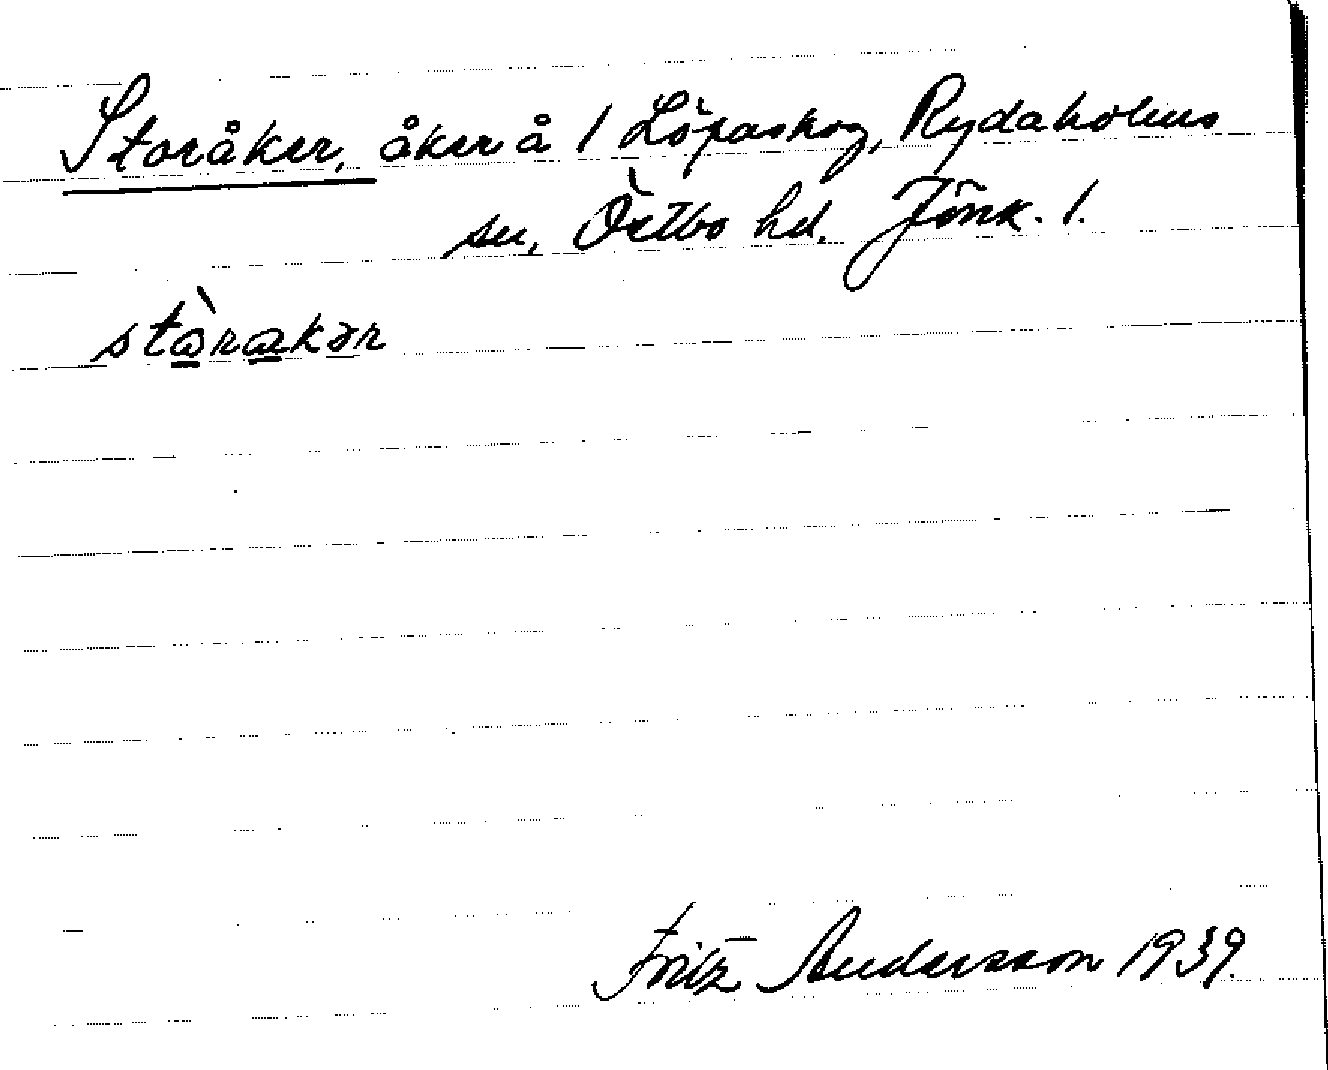 Storåker, åker å 1 Löpaskog, Rydaholms
sn, Östbo hd. Jönk. l.
Fritz Andersson 1939.